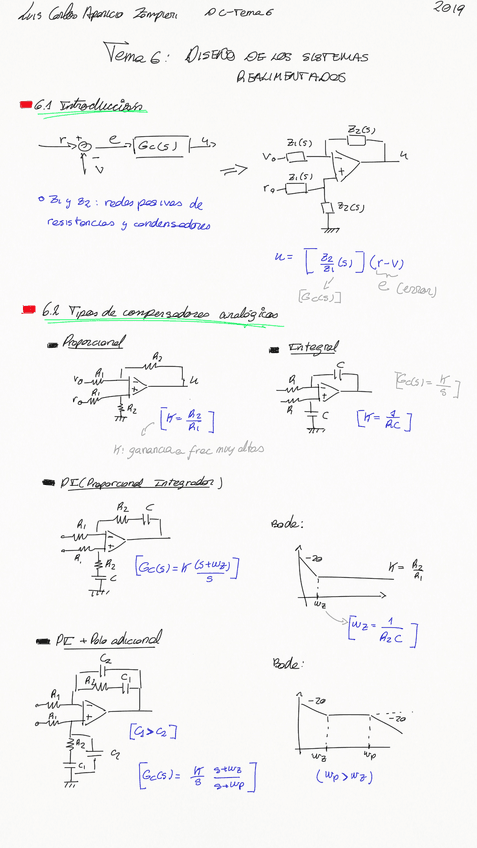 Luis Carlos Aparicio Zompieri DC-Tema 6 2019
Tema 6: DISEÑO DE LOS SISTEMAS
REALIMENTADOS
6.1 Introducción
r + e Gc(s) u
- V
⇒
Z2(s)
V Z1(s) - u
r Z1(s) +
Z2(s)
○ Z1 y Z2: redes pasivas de
resistencias y condensadores
u = [Z2/Z1 (s)] (r-V)
[Gc(s)] e (error)
6.2 Tipos de compensadores analógicos
Proporcional
R2
V R1 - u
r R1 +
R2
[K = R2/R1]
K: ganancia a frec muy altas
Integral
C
R -
R +
C
[Gc(s) = K/s]
[K = 1/RC]
PI (Proporcional Integrador)
R2 C
R1 -
R1 +
R2
C
[Gc(s) = K (s+wz)/s]
Bode:
-20
K = R2/R1
wz
[wz = 1/R2C]
PI + Polo adicional
C2
R2 C1
R1 -
R1 +
R2
C1 C2
[C1 > C2]
[Gc(s) = K/s s+wz/s+wp]
Bode:
-20
-20
wz wp
(wp > wz)